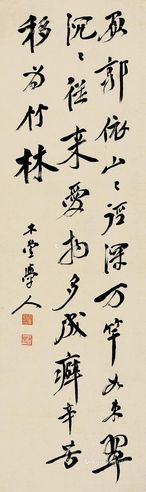 負郭依山一徑深万竿如束翠
沉々從來愛物多成癖辛苦
移為竹林
木堂學人